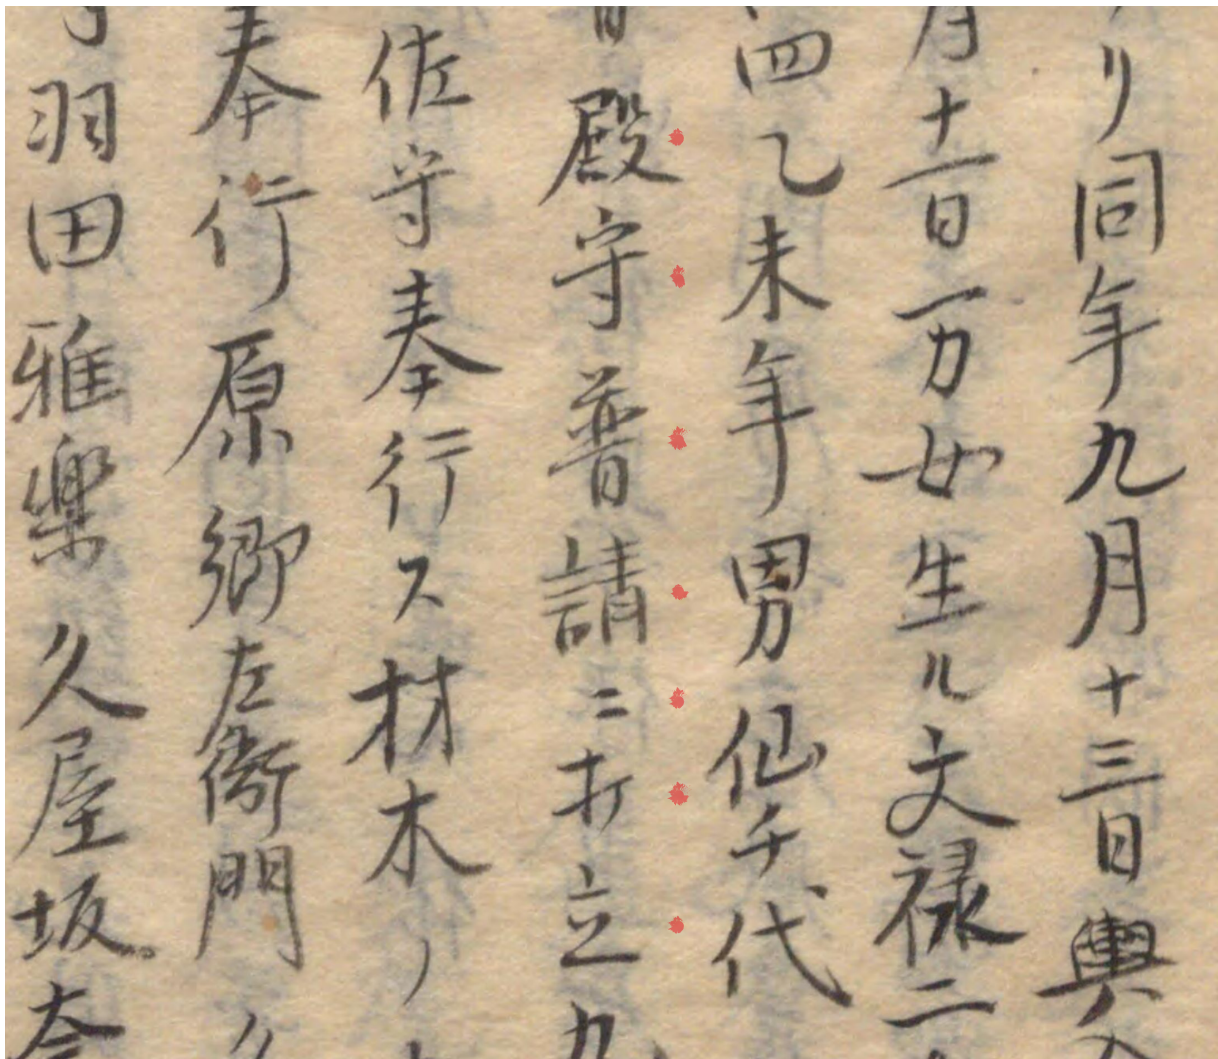 リ同年九月十三日輿入
月十一日一男女生ル文禄二
四乙未年男仙千代
殿守普請ニ打立九
佐守奉行ス材木ノ
奉行原郷左衛門久
羽田雅楽久屋坂奈